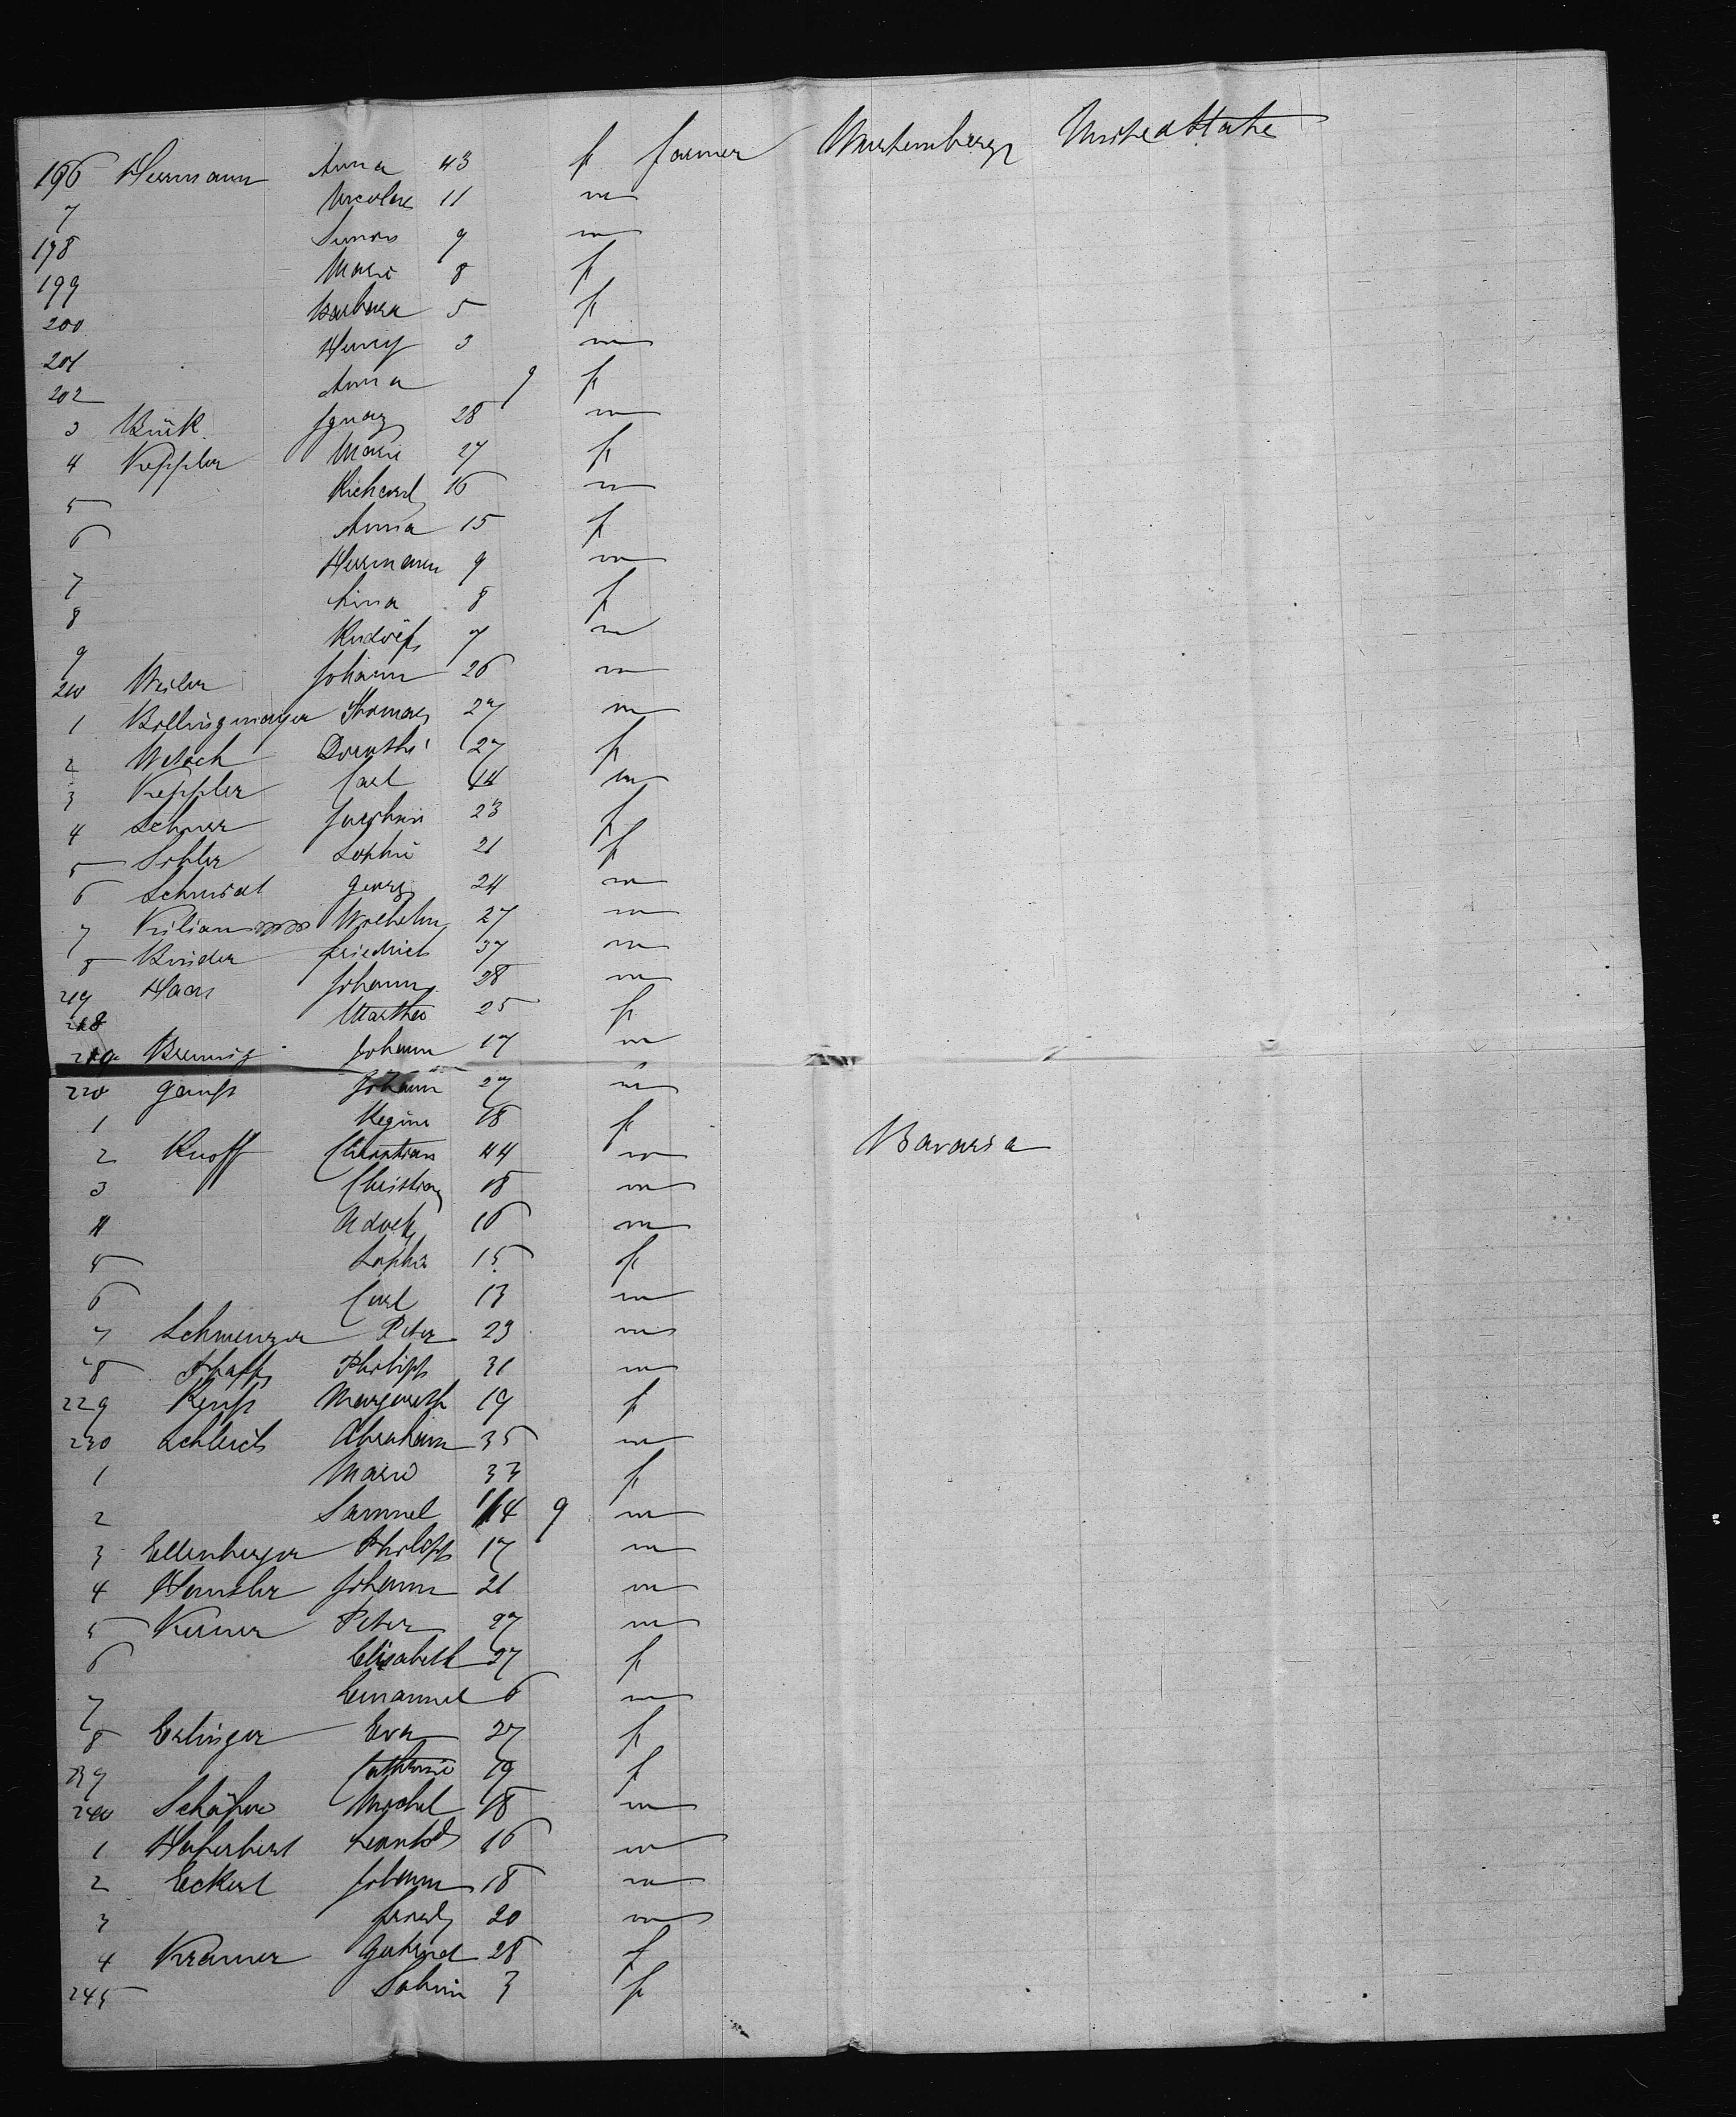 196 Herrmann Anna 43 f farmer Wurtemberg United State
7 Nicolaus 11 m
198 Simon 9 m
199 Marie 8 f
200 Barbara 5 f
201 Henry 3 m
202 Anna 9 f
3 Bück Ignaz 28 m
4 Keppler Marie 27 f
5 Richard 16 m
6 Anna 15 f
7 Herrmann 9 m
8 Lina 8 f
9 Rudolf 7 m
210 Weiler Johann 26 m
1 Bollingmayer Thomas 27 m
2 Welsch Dorothe 27 f
3 Keppler Carl 14 m
4 Josephin 23 f
5 Sophie 21 f
6 Schmidt Georg 24 m
7 Kilian Wilhelm 27 m
8 Binder Friedrich 37 m
219 Haas Johann 28 m
218 Martha 25 f
219 Johann 17 m
220 Gauss Johann 27 m
1 Regine 18 f
2 Knoff Christian 44 m Bavaria
3 Christian 18 m
4 Adolf 16 m
5 Sophie 15 f
6 Carl 13 m
7 Schmenger Peter 23 m
8 Philipp 31 m
229 Margareth 19 f
230 Schleich Abraham 35 m
1 Marie 33 f
2 Samuel 9 m
3 Ellenberger Philipp 17 m
4 Johann 21 m
5 Kerner Peter 27 m
6 Elisabeth 27 f
7 Emanuel 6 m
8 Erlinger Eva 27 f
239 Catherine 19 f
240 Schäfer Michel 18 m
1 Leonhard 16 m
2 Eckert Johann 18 m
3 20 m
4 Kramer Gertrud 28 f
245 Sabin 3 f